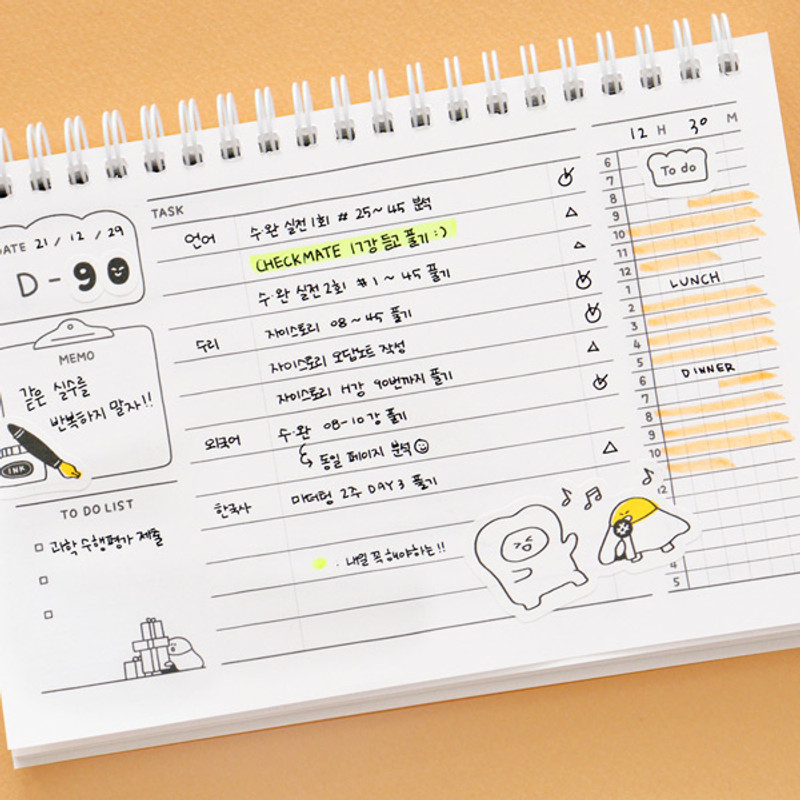 12 H 30 M
To do
TASK
DATE 21 / 12 / 29
D - 90
언어 수·완 실전 1회 # 25~45 분석
CHECKMATE 17강 듣고 풀기 :)
수·완 실전 2회 # 1 ~ 45 풀기
수리 자이스토리 08 ~ 45 풀기
자이스토리 오답노트 작성
자이스토리 H강 90번까지 풀기
외국어 수·완 08-10강 풀기
동일 페이지 분석
한국사 마더텅 2주 DAY 3 풀기
: 내일 꼭 해야하는!!
MEMO
같은 실수를
반복하지 말자!!
INK
TO DO LIST
과학 수행평가 제출
6
7
8
9
10
11
12
1
LUNCH
2
3
4
5
6
DINNER
7
8
9
10
12
4
5